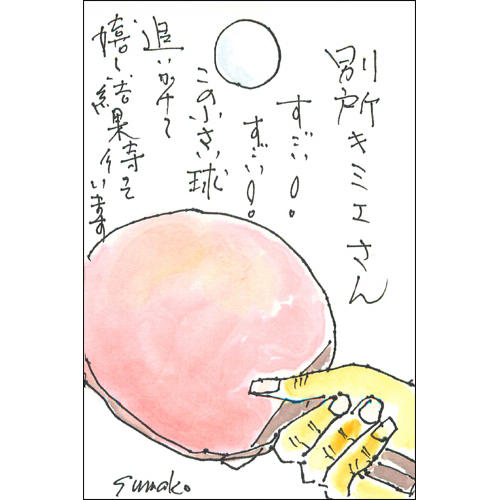 別所キミエさん
すごい!
すごい!
この小さい球
追いかけて
嬉しい結果待って
います
Sumako.